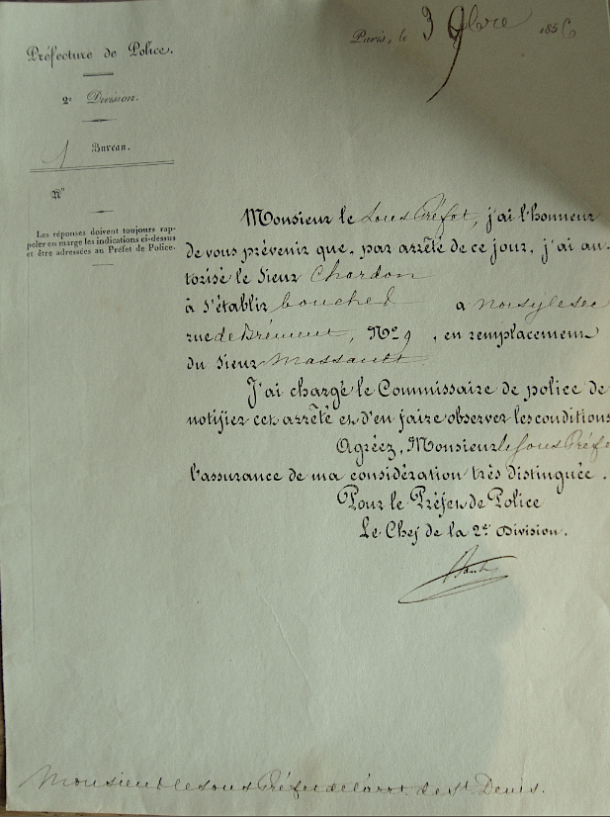 Préfecture de Police.
2e Division.
1 Bureau.
N°
Les réponses doivent toujours rap-
peler en marge les indications ci-dessus
et être adressées au Préfet de Police.
Paris, le 3 9bre 1856
Monsieur le Sous Préfet, j'ai l'honneur
de vous prévenir que, par arrêté de ce jour, j'ai au-
torisé le Sieur Chardon
à s'établir boucher à noisy le sec
rue de Brément, N° 9, en remplacement
du Sieur Massault.
J'ai chargé le Commissaire de police de
notifier cet arrêté et d'en faire observer les conditions
Agréez, Monsieur le Sous Préfe
l'assurance de ma considération très distinguée.
Pour le Préfet de Police
Le Chef de la 2e Division.
Monsieur le sous Préfet de l'arrt de St Denis.